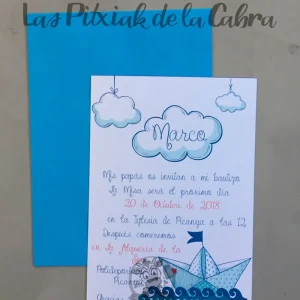 Las Pitxiak de la Cabra
Marco
Mis papás os invitan a mi bautizo
la Misa será el próximo día
20 de Octubre de 2018
en la Iglesia de Picanya a las 12
Después comeremos
en la Alqueria de la
Polideportivo
Picanya
Gracias